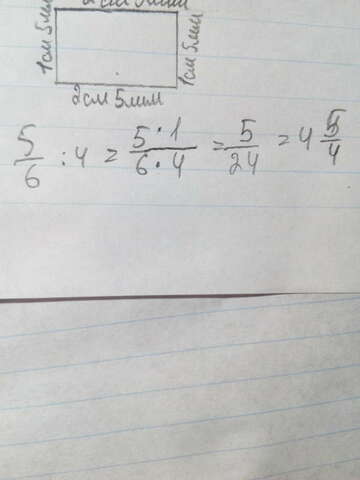 2см 5мм
1см 5мм
1см 5мм
2см 5мм
5/6 : 4 = 5·1/6·4 = 5/24 = 4 5/4